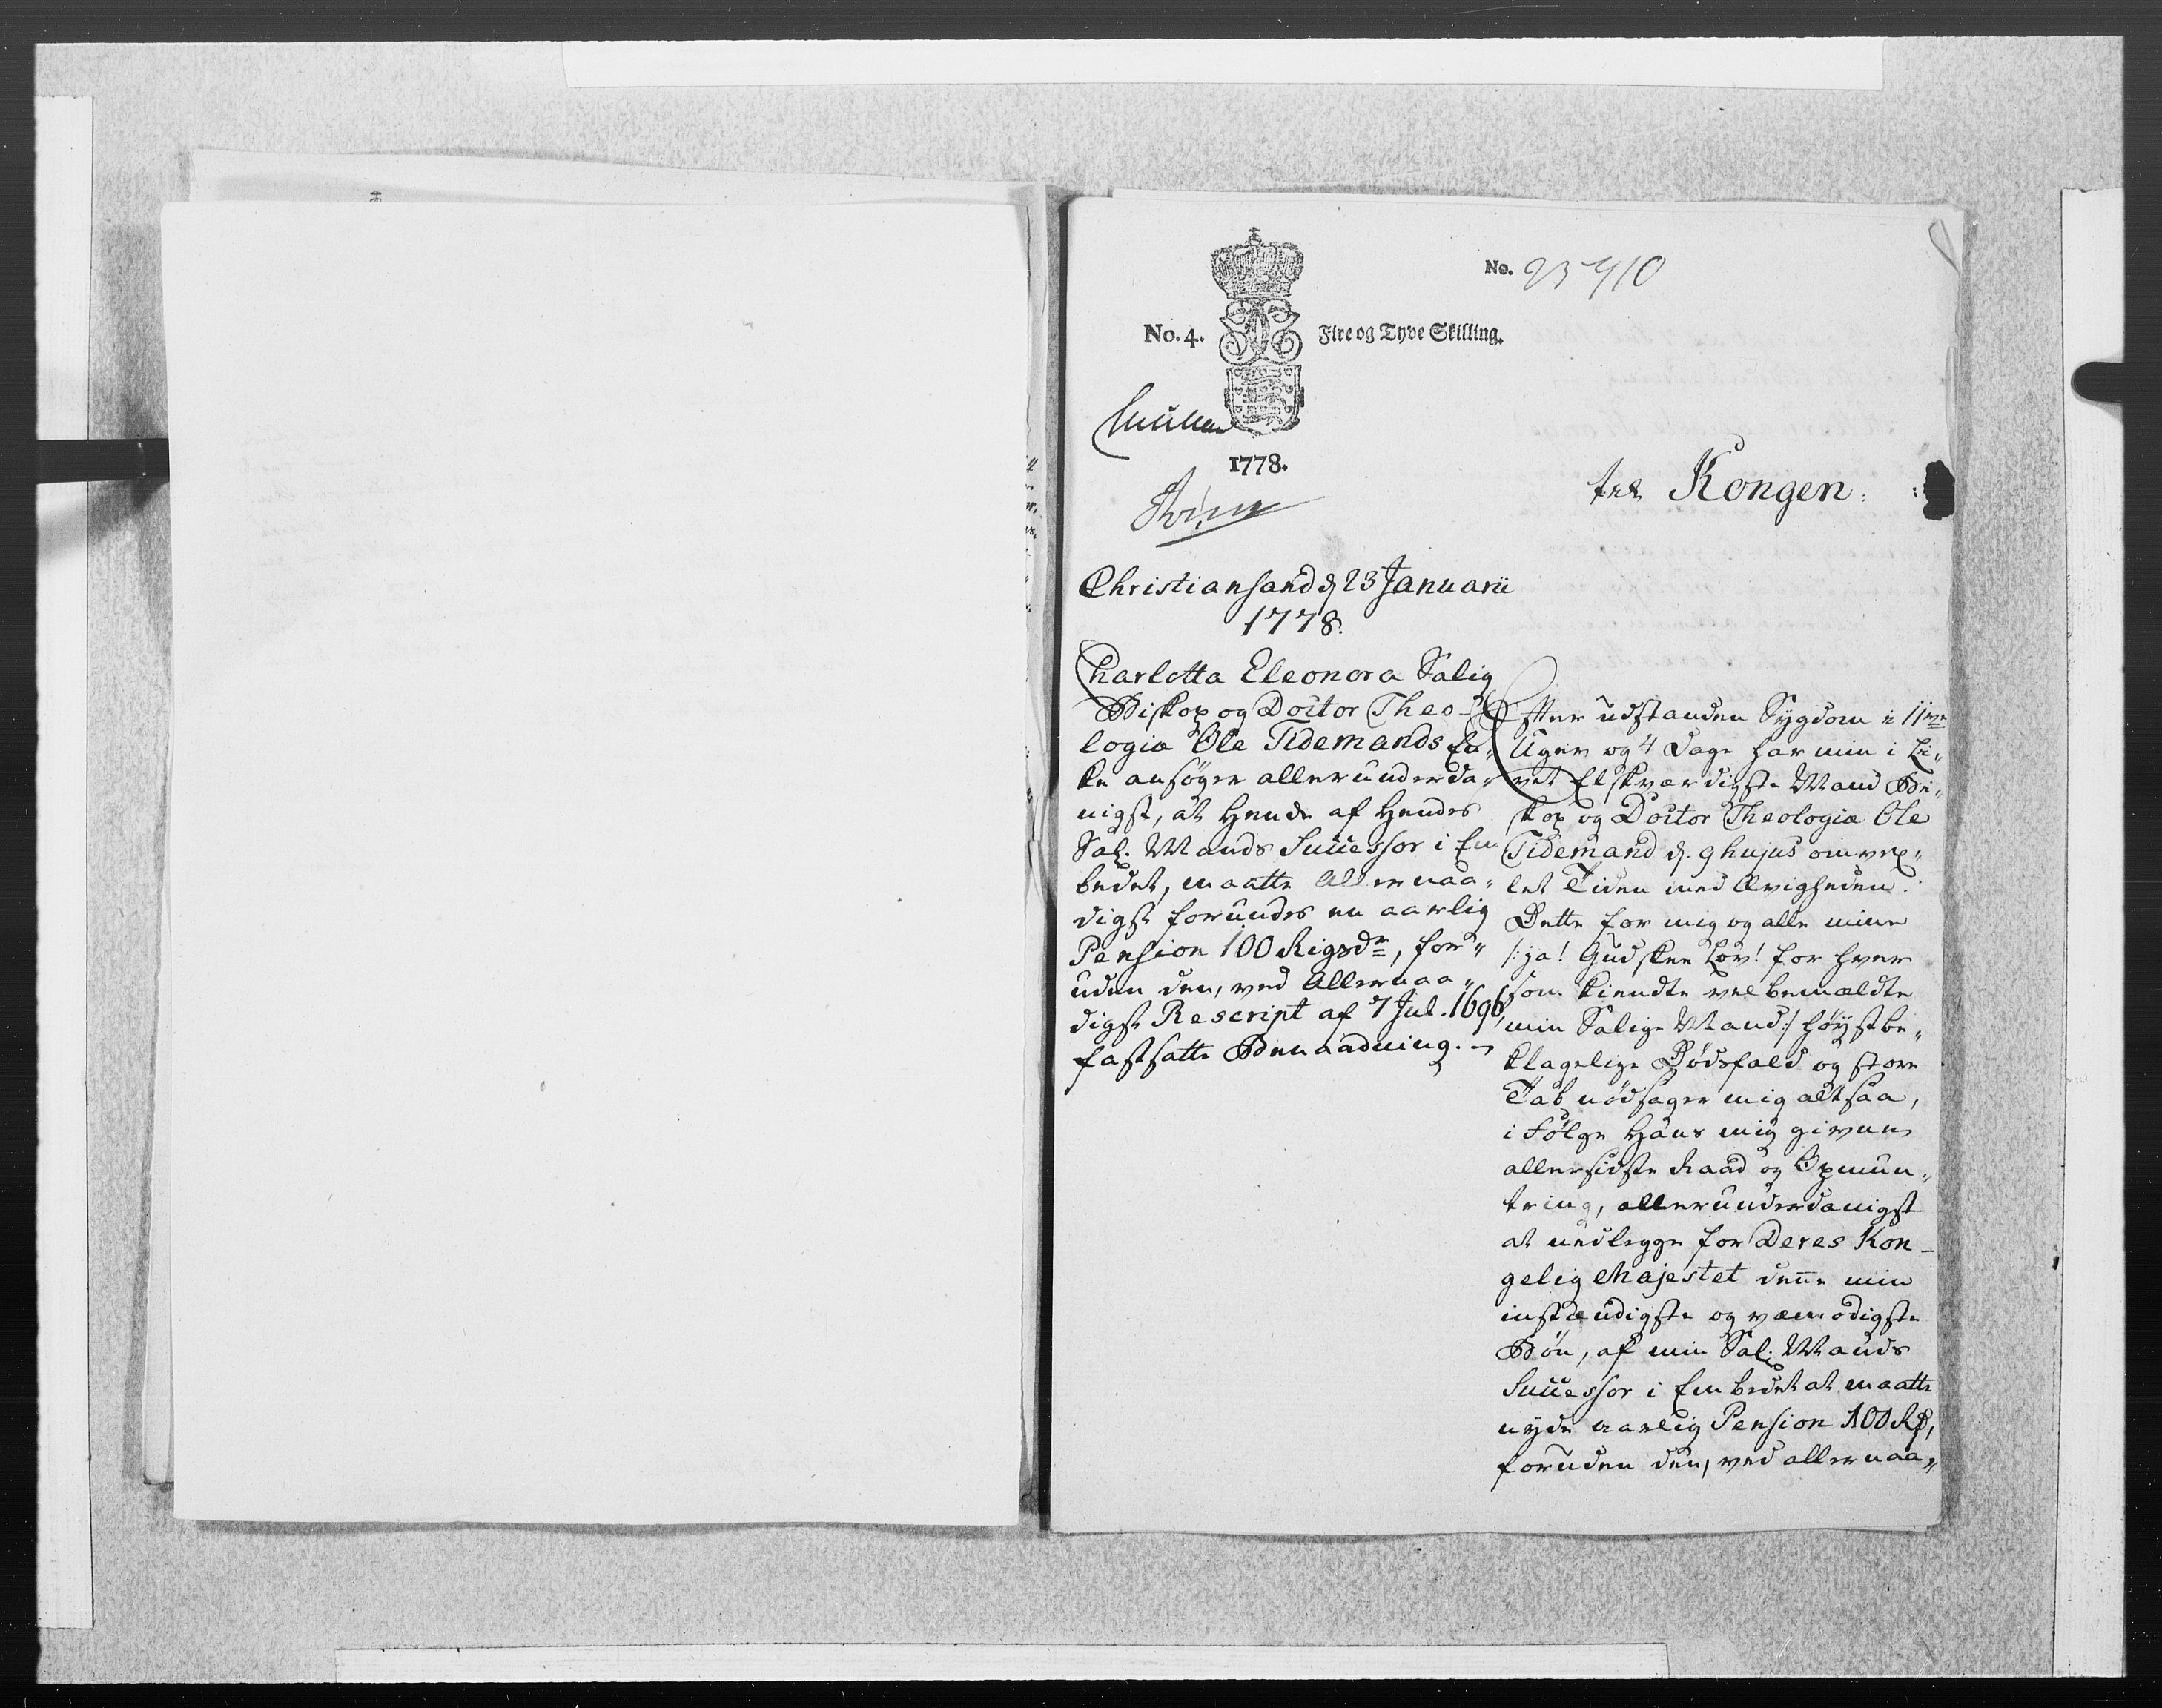 No. 23410
No. 4. Fire og Tyve Skilling.
1778.
til Kongen.
Christiansand d. 23 Januarii
1778.
Charlotta Eleonora Salig
Biskop og Doctor Theo-
logiæ Ole Tidemands En-
ke ansöger allerunderda-
nigst, at Hende af Hendes
Sal. Mands Successor i Em
bedet, maatte Allernaa-
digst forundes en aarlig
Pension 100 Rigsdr, for-
uden den, ved Allernaa-
digst Rescript af 7 Jul. 1696,
fastsatte Benaadning.
Efter udstanden Sygdom i 11ve
Uger og 4 Dage har min i Li-
vet Elskværdigste Mand Bi-
skop og Doctor Theologiæ Ole
Tidemand d. 9 hujus omvex-
let Tiden med Ævigheden.
Dette for mig og alle mine
/: ja! Gud skee Lov! for hver
som kiendte velbemældte
min Salige Mand :/ höystbe-
klagelige Dödsfald og store
Tab nödsager mig altsaa,
i Fölge Hans mig given
allersidste Raad og Opmun-
tring, allerunderdanigst
at nedlegge for Deres Kon-
gelig Majestet denne min
instændigste og væmodigste
Bön, af min Sal. Mands
Successor i Embedet at maatte
nyde aarlig Pension 100 Rd,
foruden den, ved allernaa-